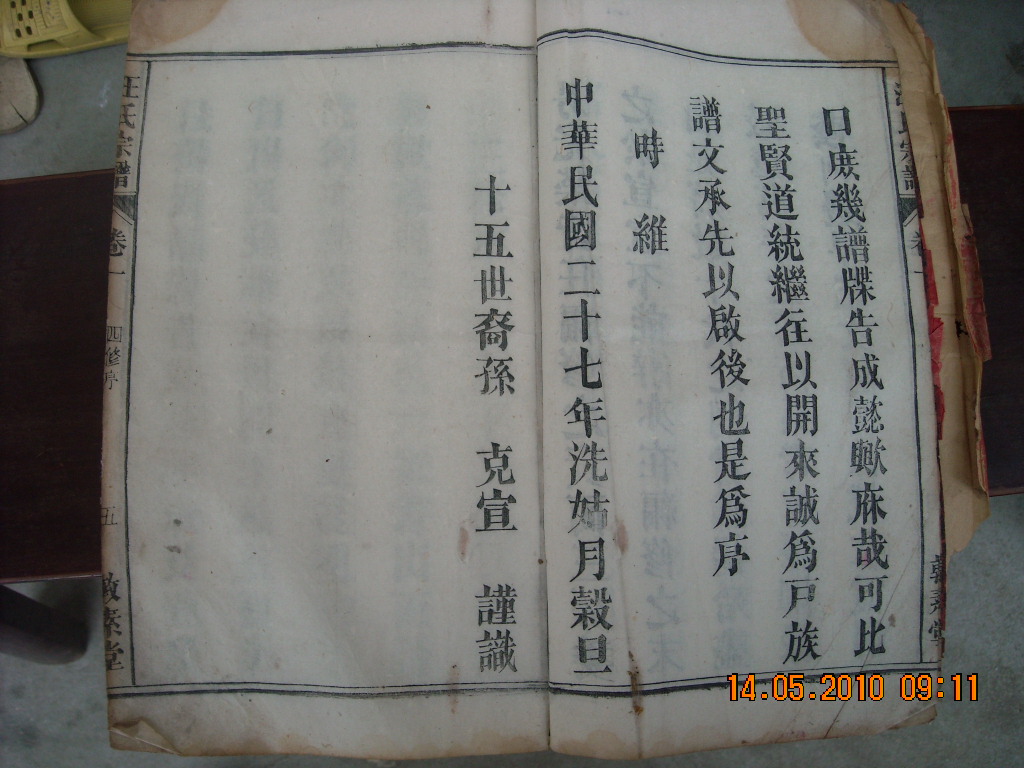 口庶幾譜牒告成懿歟庥哉可比
聖賢道統繼往以開來誠爲戸族
譜文承先以啟後也是爲序
時維
中華民國二十七年洗姑月榖旦
十五世裔孫 克宣 謹識
汪氏宗譜 卷一 四修序 五 敦素堂
14.05.2010 09:11